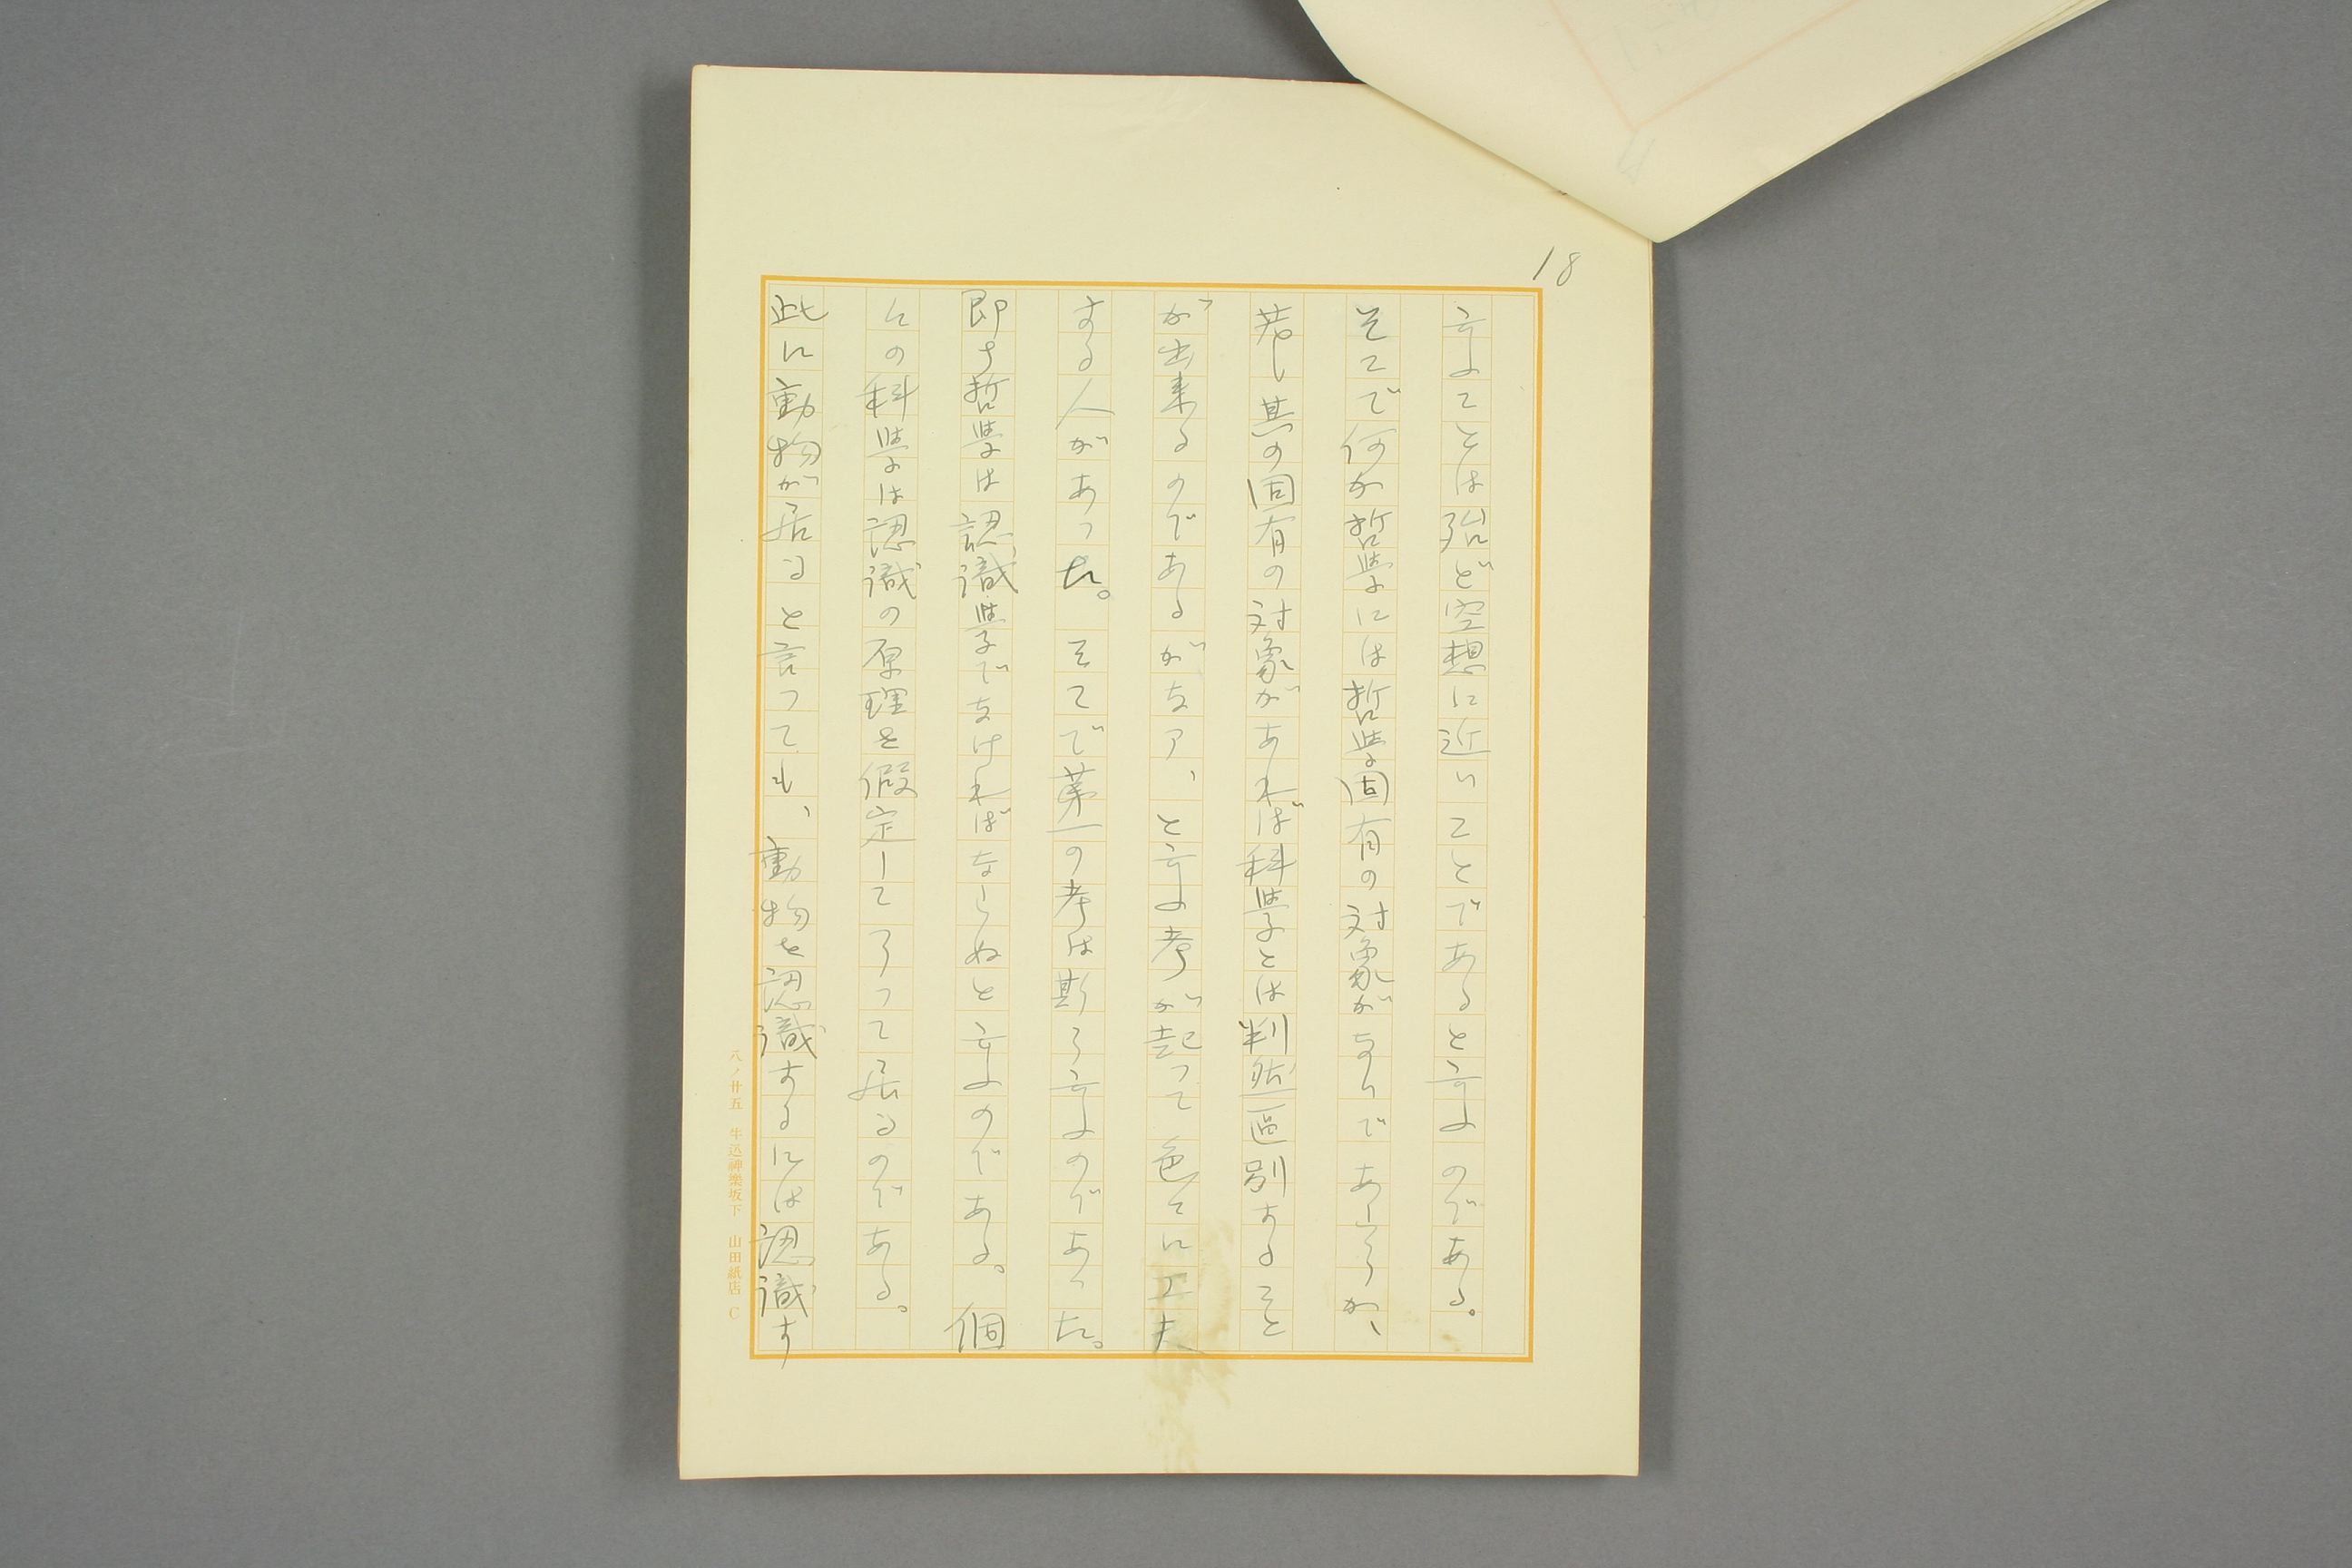 18
云ふことは殆ど空想に近いことであると云ふのである。
そこで何か哲学には哲学固有の対象がないであらうか、
若し其の固有の対象があれば科学とは判然區別すること
が出来るのであるがなア、と云ふ考が起って色々に工夫
する人があった。そこで第一の考は斯う云ふのであった。
即ち哲学は認識学でなければならぬと云ふのである。個
々の科学は認識の原理を假定して了って居るのである。
此に動物が居ると言っても、動物を認識するには認識す
八ノ廿五 牛込神樂坂下 山田紙店 C